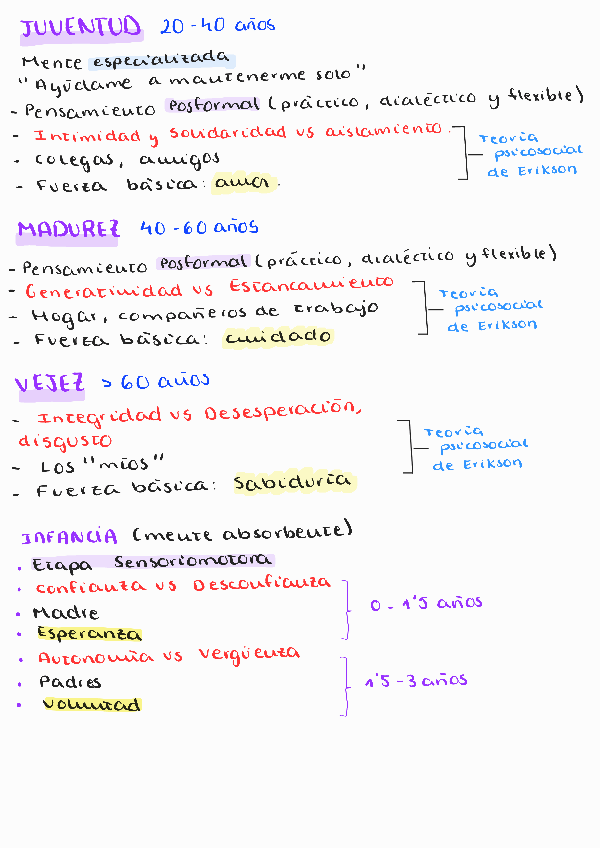 JUVENTUD 20-40 años
Mente especializada
"Ayúdame a mantenerme solo"
- Pensamiento Posformal (práctico, dialéctico y flexible)
- Intimidad y Solidaridad vs aislamiento.
- colegas, amigos
- Fuerza básica: amor.
Teoría
psicosocial
de Erikson
MADUREZ 40-60 años
- Pensamiento Posformal (práctico, dialéctico y flexible)
- Generatividad vs Estancamiento
- Hogar, compañeros de trabajo
- Fuerza básica: cuidado
Teoría
psicosocial
de Erikson
VEJEZ > 60 años
- Integridad vs Desesperación,
disgusto
- Los "míos"
- Fuerza básica: Sabiduría
Teoría
psicosocial
de Erikson
INFANCIA (mente absorbente)
• Etapa Sensoriomotora
• confianza vs Desconfianza
• Madre
• Esperanza
0-1'5 años
• Autonomía vs vergüenza
• Padres
• voluntad
1'5-3 años